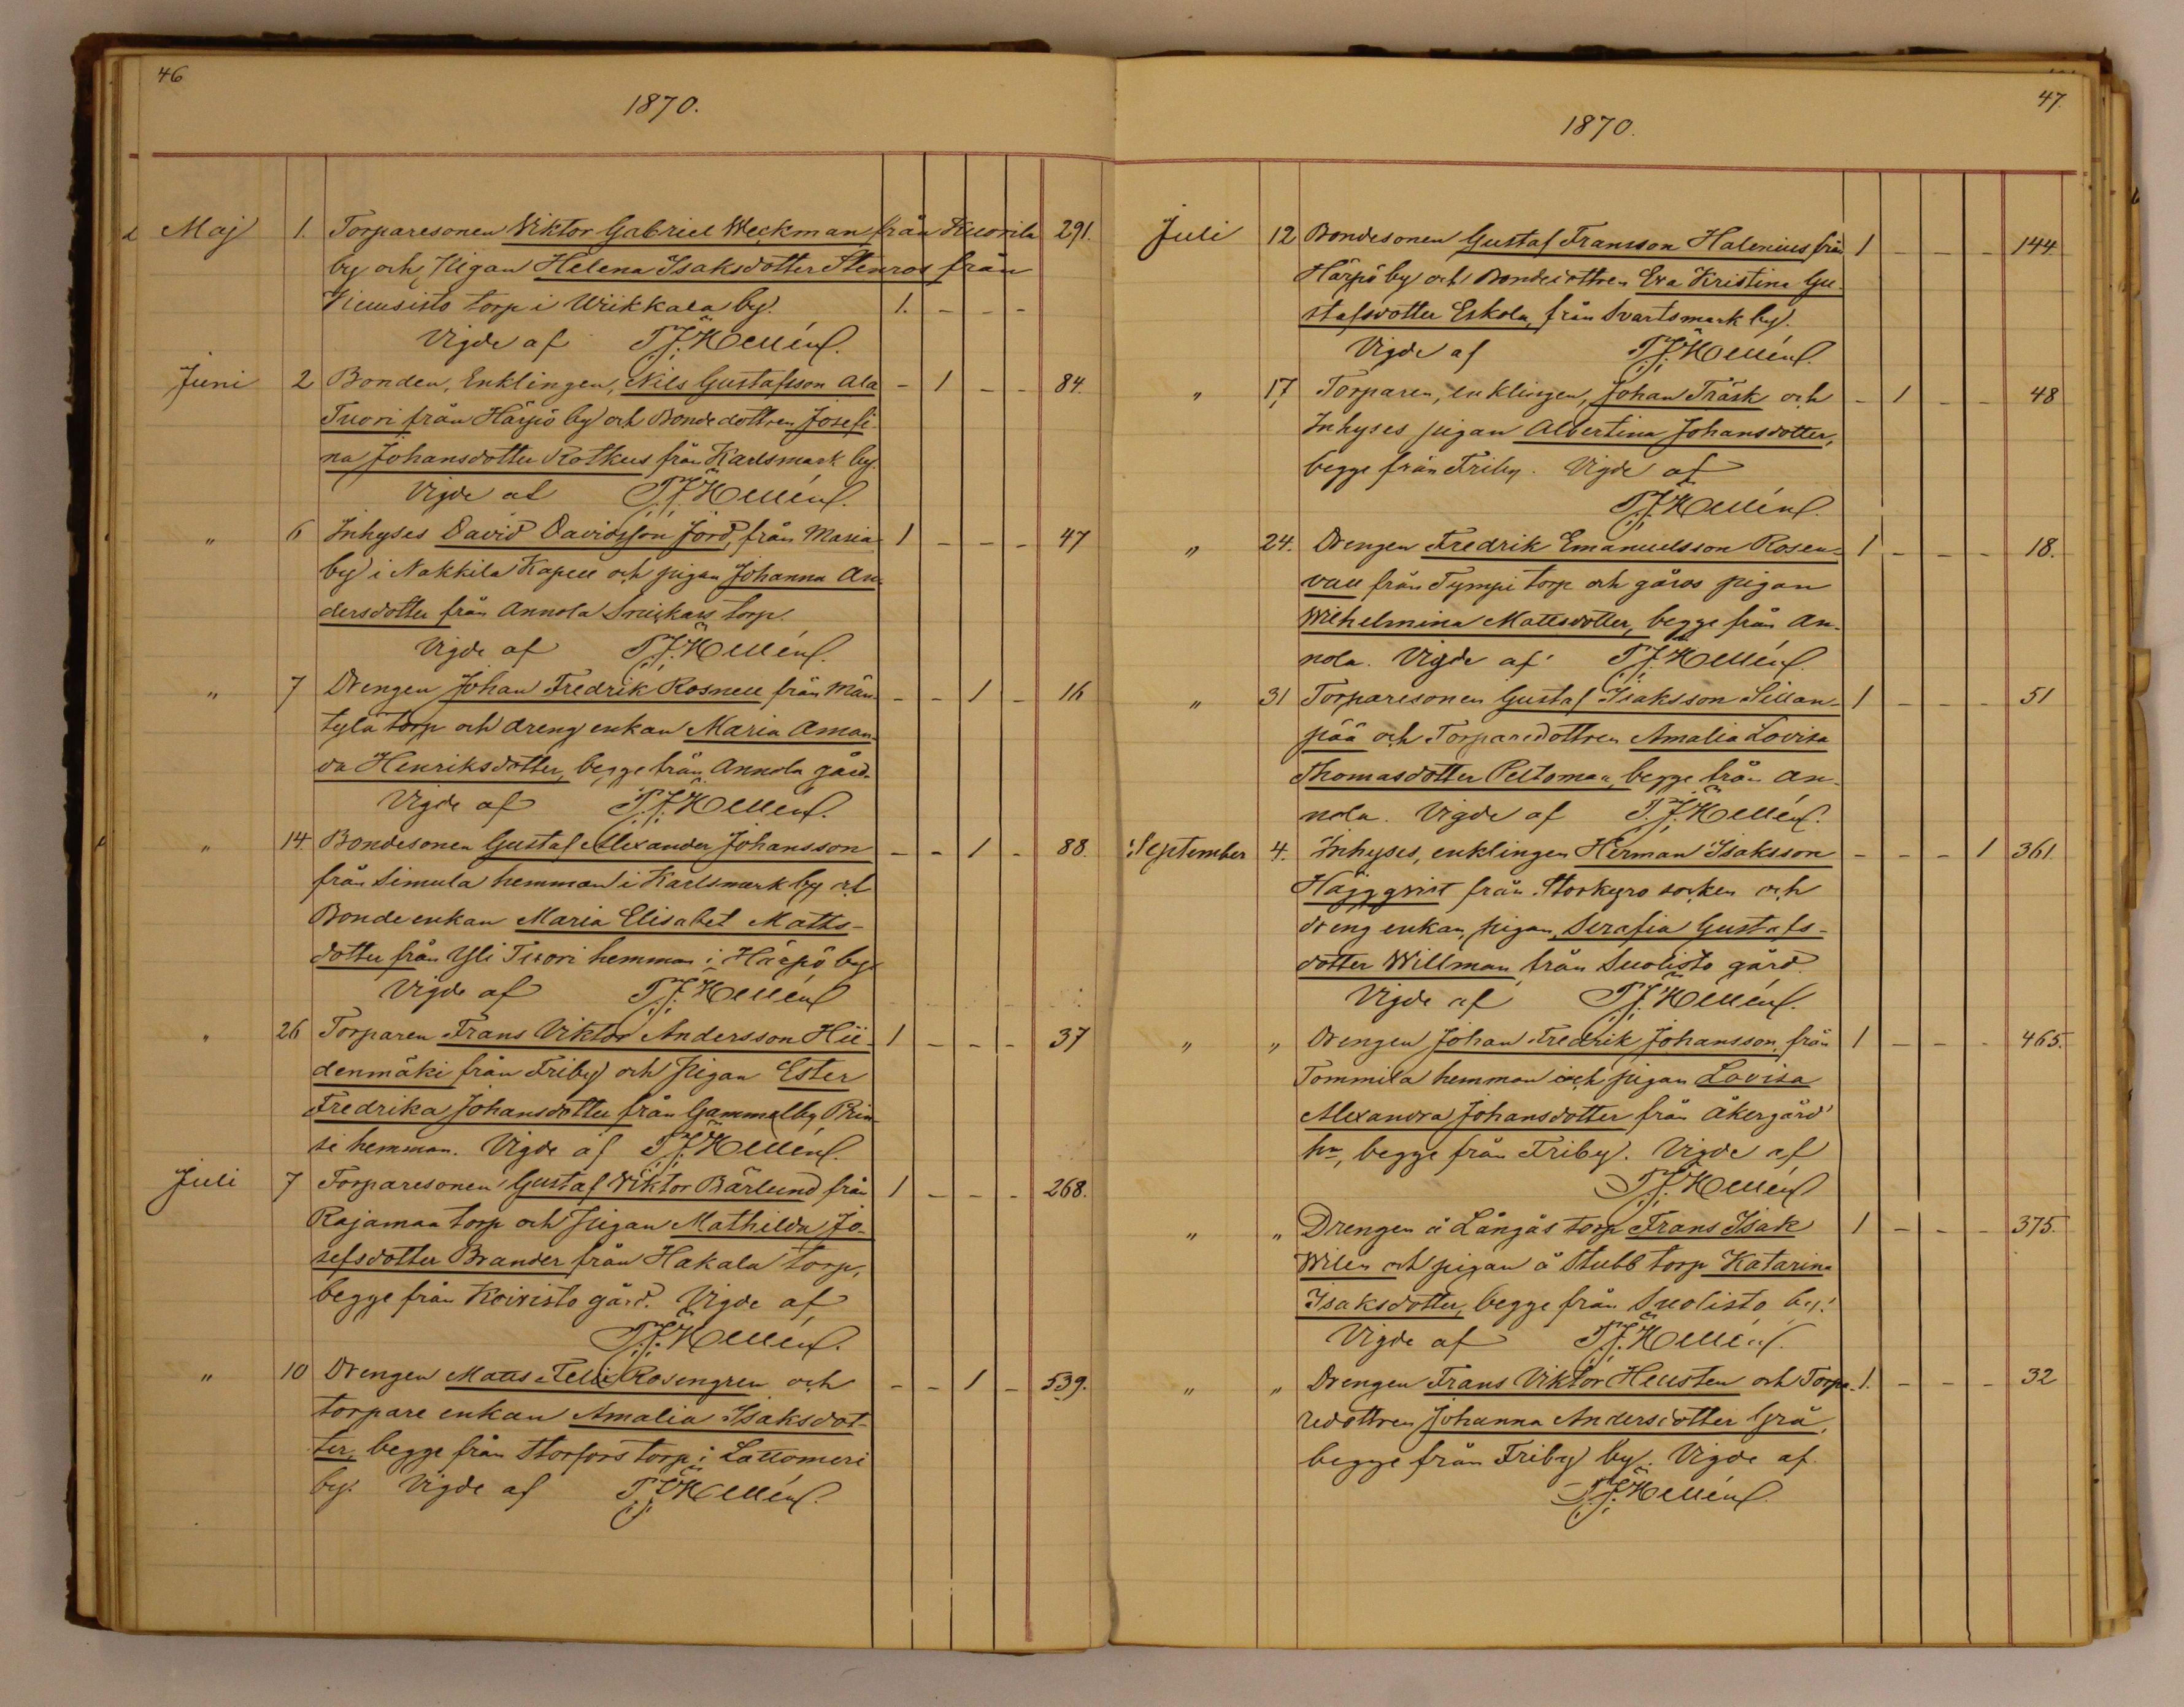 46
1870.
Maj 1. Torparesonen Viktor Gabriel Weckman från Kuorila 291.
by och Pigan Helena Isaksdotter Stenros från
torp i Wiikkala by. 1. - - -
Vigde af T.J. Hellén.
Juni 2 Bonden, Enklingen, Nils Gustafsson Ala - 1 - - 84.
Tuori från Härpö by och Bondedottren Josefi-
na Johansdotter Rotkus från Karlsmark by.
Vigde af T.J. Hellén.
" 6 Inhyses David Davidsson Jord, från Maria 1 - - - 47
by i Nakkila Kapell och pigan Johanna An-
dersdotter från Annola Snickars torp.
Vigde af T.J. Hellén.
" 7 Drengen Johan Fredrik Rosnell från Män- - - 1 - 16
tylä torp och dreng enkan Maria Aman-
da Henriksdotter, begge från Annola gård.
Vigde af T.J. Hellén.
" 14 Bondesonen Gustaf Alexander Johansson - - 1 - 88.
från Simula hemman i Karlsmark by och
Bonde enkan Maria Elisabet Matts-
dotter från Yli Tuori hemman i Härpö by.
Vigde af T.J. Hellén
" 26 Torparen Frans Viktor Andersson Hii- 1 - - - 37
denmäki från Friby och Pigan Ester
Fredrika Johansdotter från Gammelby, Prin-
si hemman. Vigde af T.J. Hellén.
Juli 7 Torparesonen Gustaf Viktor Bärlund från 1 - - - 268.
Rajamaa torp och Pigan Mathilda Jo-
sefsdotter Brander från Hakala torp,
begge från Koivisto gård. Vigde af
T.J. Hellén.
" 10 Drengen Matts Felix Rosengren och - - 1 - 539.
torpare enkan Amalia Isaksdot-
ter, begge från Storfors torp i Lattomeri
by. Vigde af T.J. Hellén.
47.
1870.
Juli 12 Bondesonen Gustaf Fransson Halenius från 1 - - - 144.
Härpö by och Bondedottren Eva Kristina Gu-
stafsdotter Eskola, från Svartsmark by.
Vigde af T.J. Hellén.
" 17 Torparen, enklingen, Johan Träsk och - 1 - - 48
Inhyses pigan Albertina Johansdotter,
begge från Friby. Vigde af
T.J. Hellén.
" 24. Drengen Fredrik Emanuelsson Rosen- 1 - - - 18.
vall från Tympi torp och gårds pigan
Wilhelmina Mattsdotter, begge från An-
nola. Vigde af T.J. Hellén.
" 31 Torparesonen Gustaf Isaksson Sillan- 1 - - - 51
pää och Torparedottren Amalia Lovisa
Thomasdotter Peltomaa, begge från An-
nola. Vigde af T.J. Hellén.
September 4. Inhyses, enklingen Herman Isaksson - - - 1 361.
Häggqvist från Storkyro socken och
dreng enkan, pigan, Serafia Gustafs-
dotter Willman, från Suolisto gård.
Vigde af T.J. Hellén.
" " Drengen Johan Fredrik Johansson, från 1 - - - 465.
Tommila hemman och pigan Lovisa
Alexandra Johansdotter från Åkergård
hn, begge från Friby. Vigde af
T.J. Hellén
" " Drengen å Långås torp Frans Isak 1 - - - 375.
Wilen och pigan å Stubb torp Katarina
Isaksdotter, begge från Suolisto by.
Vigde af T.J. Hellén.
" " Drengen Frans Viktor Heusten och Torpa- 1. - - - 32
redottren Johanna Andersdotter Grå,
begge från Friby by. Vigde af
T.J. Hellén.